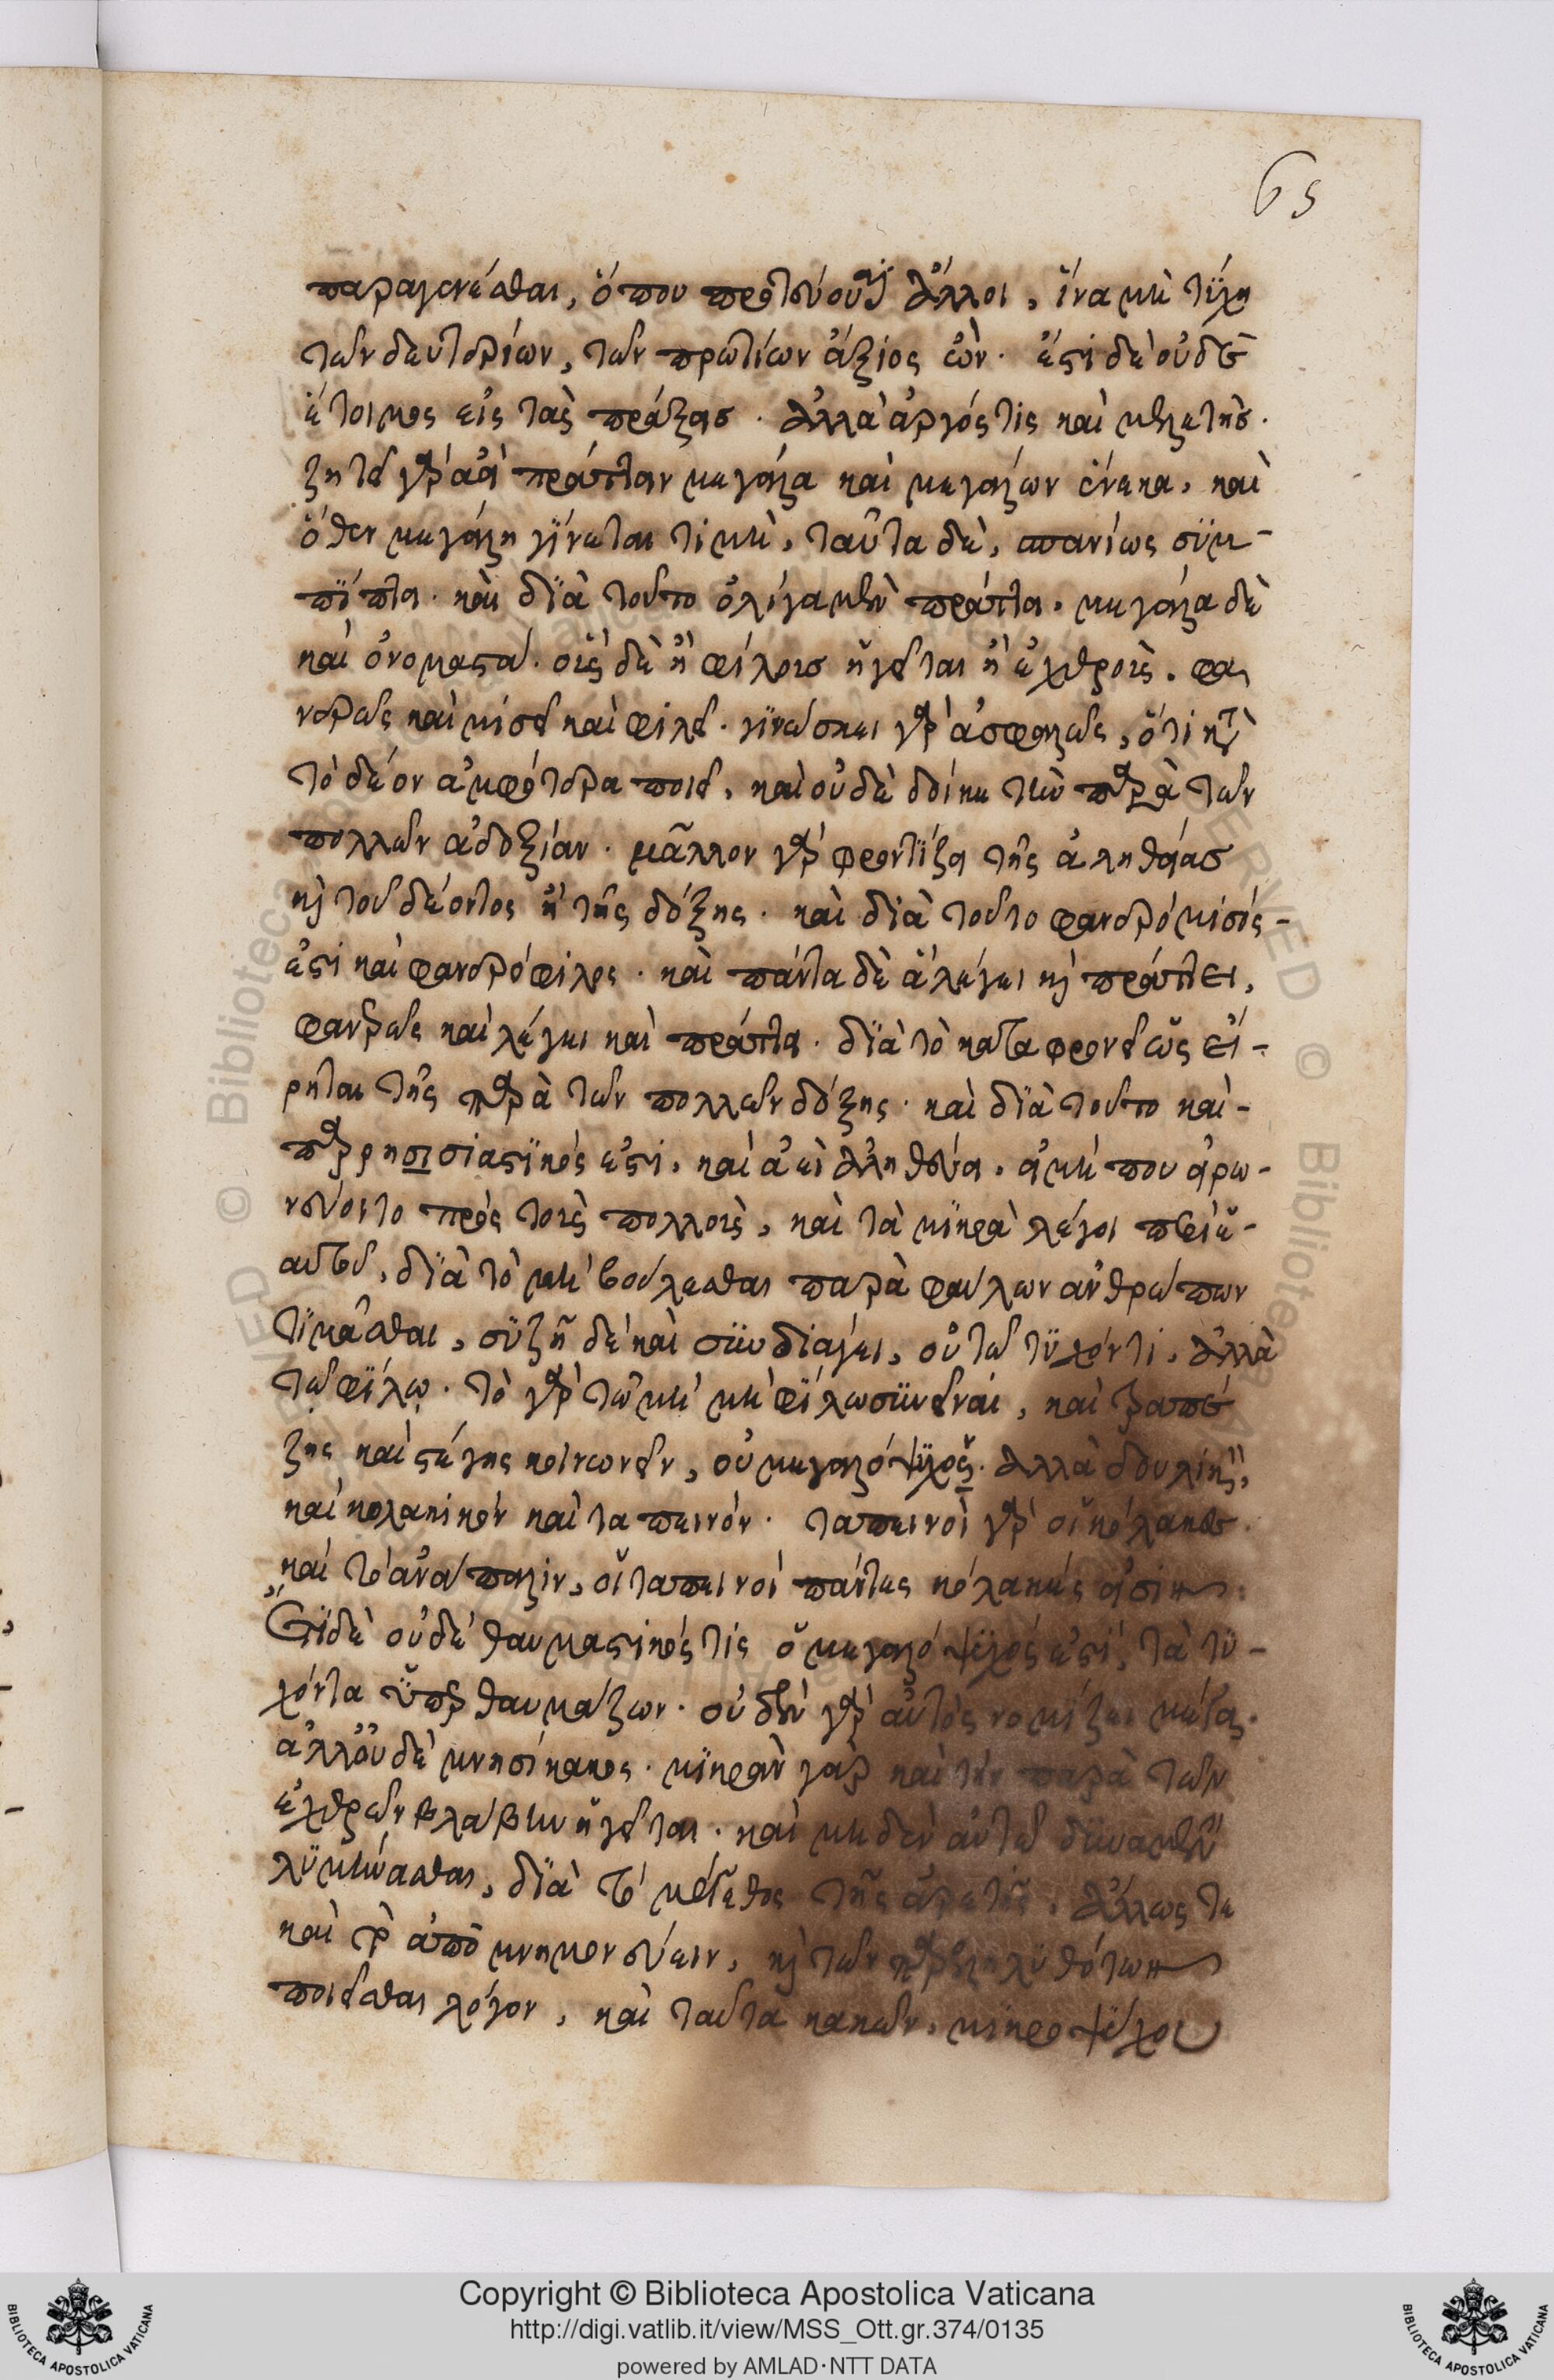 65
παραγενέσθαι, ὅπου πρωτεύουσιν ἄλλοι, ἵνα μὴ τύχῃ
τῶν δευτερείων, τῶν πρωτείων ἄξιος ὤν. ἔστι δὲ οὐδὲ
ἕτοιμος εἰς τὰς πράξεις. ἀλλὰ ἀργός τις καὶ μελλετής.
ζητεῖ γὰρ ἀεὶ πράττειν μεγάλα καὶ μεγάλων ἕνεκα, καὶ
ὅθεν μεγάλη γίνεται τιμὴ, ταῦτα δὲ, σπανίως συμ-
πίπτει. καὶ διὰ τοῦτο ὀλίγα μὲν πράττει. μεγάλα δὲ
καὶ ὀνομαστά. οἷς δὲ ἢ φίλοις ἡγεῖται ἢ ἐχθροῖς. φα
νερῶς καὶ μισεῖ καὶ φιλεῖ. γινώσκει γὰρ ἀσφαλῶς, ὅτι κατὰ
τὸ δέον ἀμφότερα ποιεῖ, καὶ οὐ δέδοικε τὴν παρὰ τῶν
πολλῶν ἀδοξίαν. μᾶλλον γὰρ φροντίζει τῆς ἀληθείας
καὶ τοῦ δέοντος ἢ τῆς δόξης. καὶ διὰ τοῦτο φανερόμισός-
ἐστι καὶ φανερόφιλος. καὶ πάντα δὲ ἃ λέγει καὶ πράττει,
φανερῶς καὶ λέγει καὶ πράττει. διὰ τὸ καταφρονεῖν ὡς εἴ-
ρηται τῆς παρὰ τῶν πολλῶν δόξης. καὶ διὰ τοῦτο καὶ-
παρρησισιαστικός ἐστι. καὶ ἀεὶ ἀληθεύει. εἰ μή που εἰρω-
νεύοιτο πρὸς τοὺς πολλοὺς, καὶ τὰ μικρὰ λέγοι περὶ ἑ-
αυτοῦ, διὰ τὸ μὴ βούλεσθαι παρὰ φαύλων ἀνθρώπων
τιμᾶσθαι, συζῇ δὲ καὶ συνδιάγει, οὐ τῷ τυχόντι. ἀλλὰ
τῷ φίλῳ. τὸ γὰρ τῷ μὴ μὴ φίλω συνεῖναι, καὶ τραπέ
ζης καὶ στέγης κοινωνεῖν, οὐ μεγαλόψυχον. ἀλλὰ δουλικὸν,
καὶ κολακικὸν καὶ ταπεινόν. ταπεινοὶ γὰρ οἱ κόλακες.
καὶ τὸ ἀνάπαλιν, οἱ ταπεινοὶ πάντες κόλακές εἰσιν:
Ἔτι δὲ οὐδὲ θαυμαστικός τις ὁ μεγαλόψυχός ἐστι, τὰ τυ-
χόντα ὑπερθαυμάζων. οὐδὲν γὰρ αὐτὸς νομίζει μέγα.
ἀλλ' οὐδὲ μνησίκακος. μικρὰν γὰρ καὶ τὴν παρὰ τῶν
ἐχθρῶν βλάβην ἡγεῖται. καὶ μηδὲν αὐτῷ δυναμένην
λυμήνασθαι, διὰ τὸ μέγεθος τῆς ἀρετῆς. ἄλλως τε
καὶ τὸ ἀπομνημονεύειν, καὶ τῶν παρεληλυθότων
ποιεῖσθαι λόγον, καὶ ταῦτα κακῶν. μικροψύχου
Copyright © Biblioteca Apostolica Vaticana
http://digi.vatlib.it/view/MSS_Ott.gr.374/0135
powered by AMLAD·NTT DATA